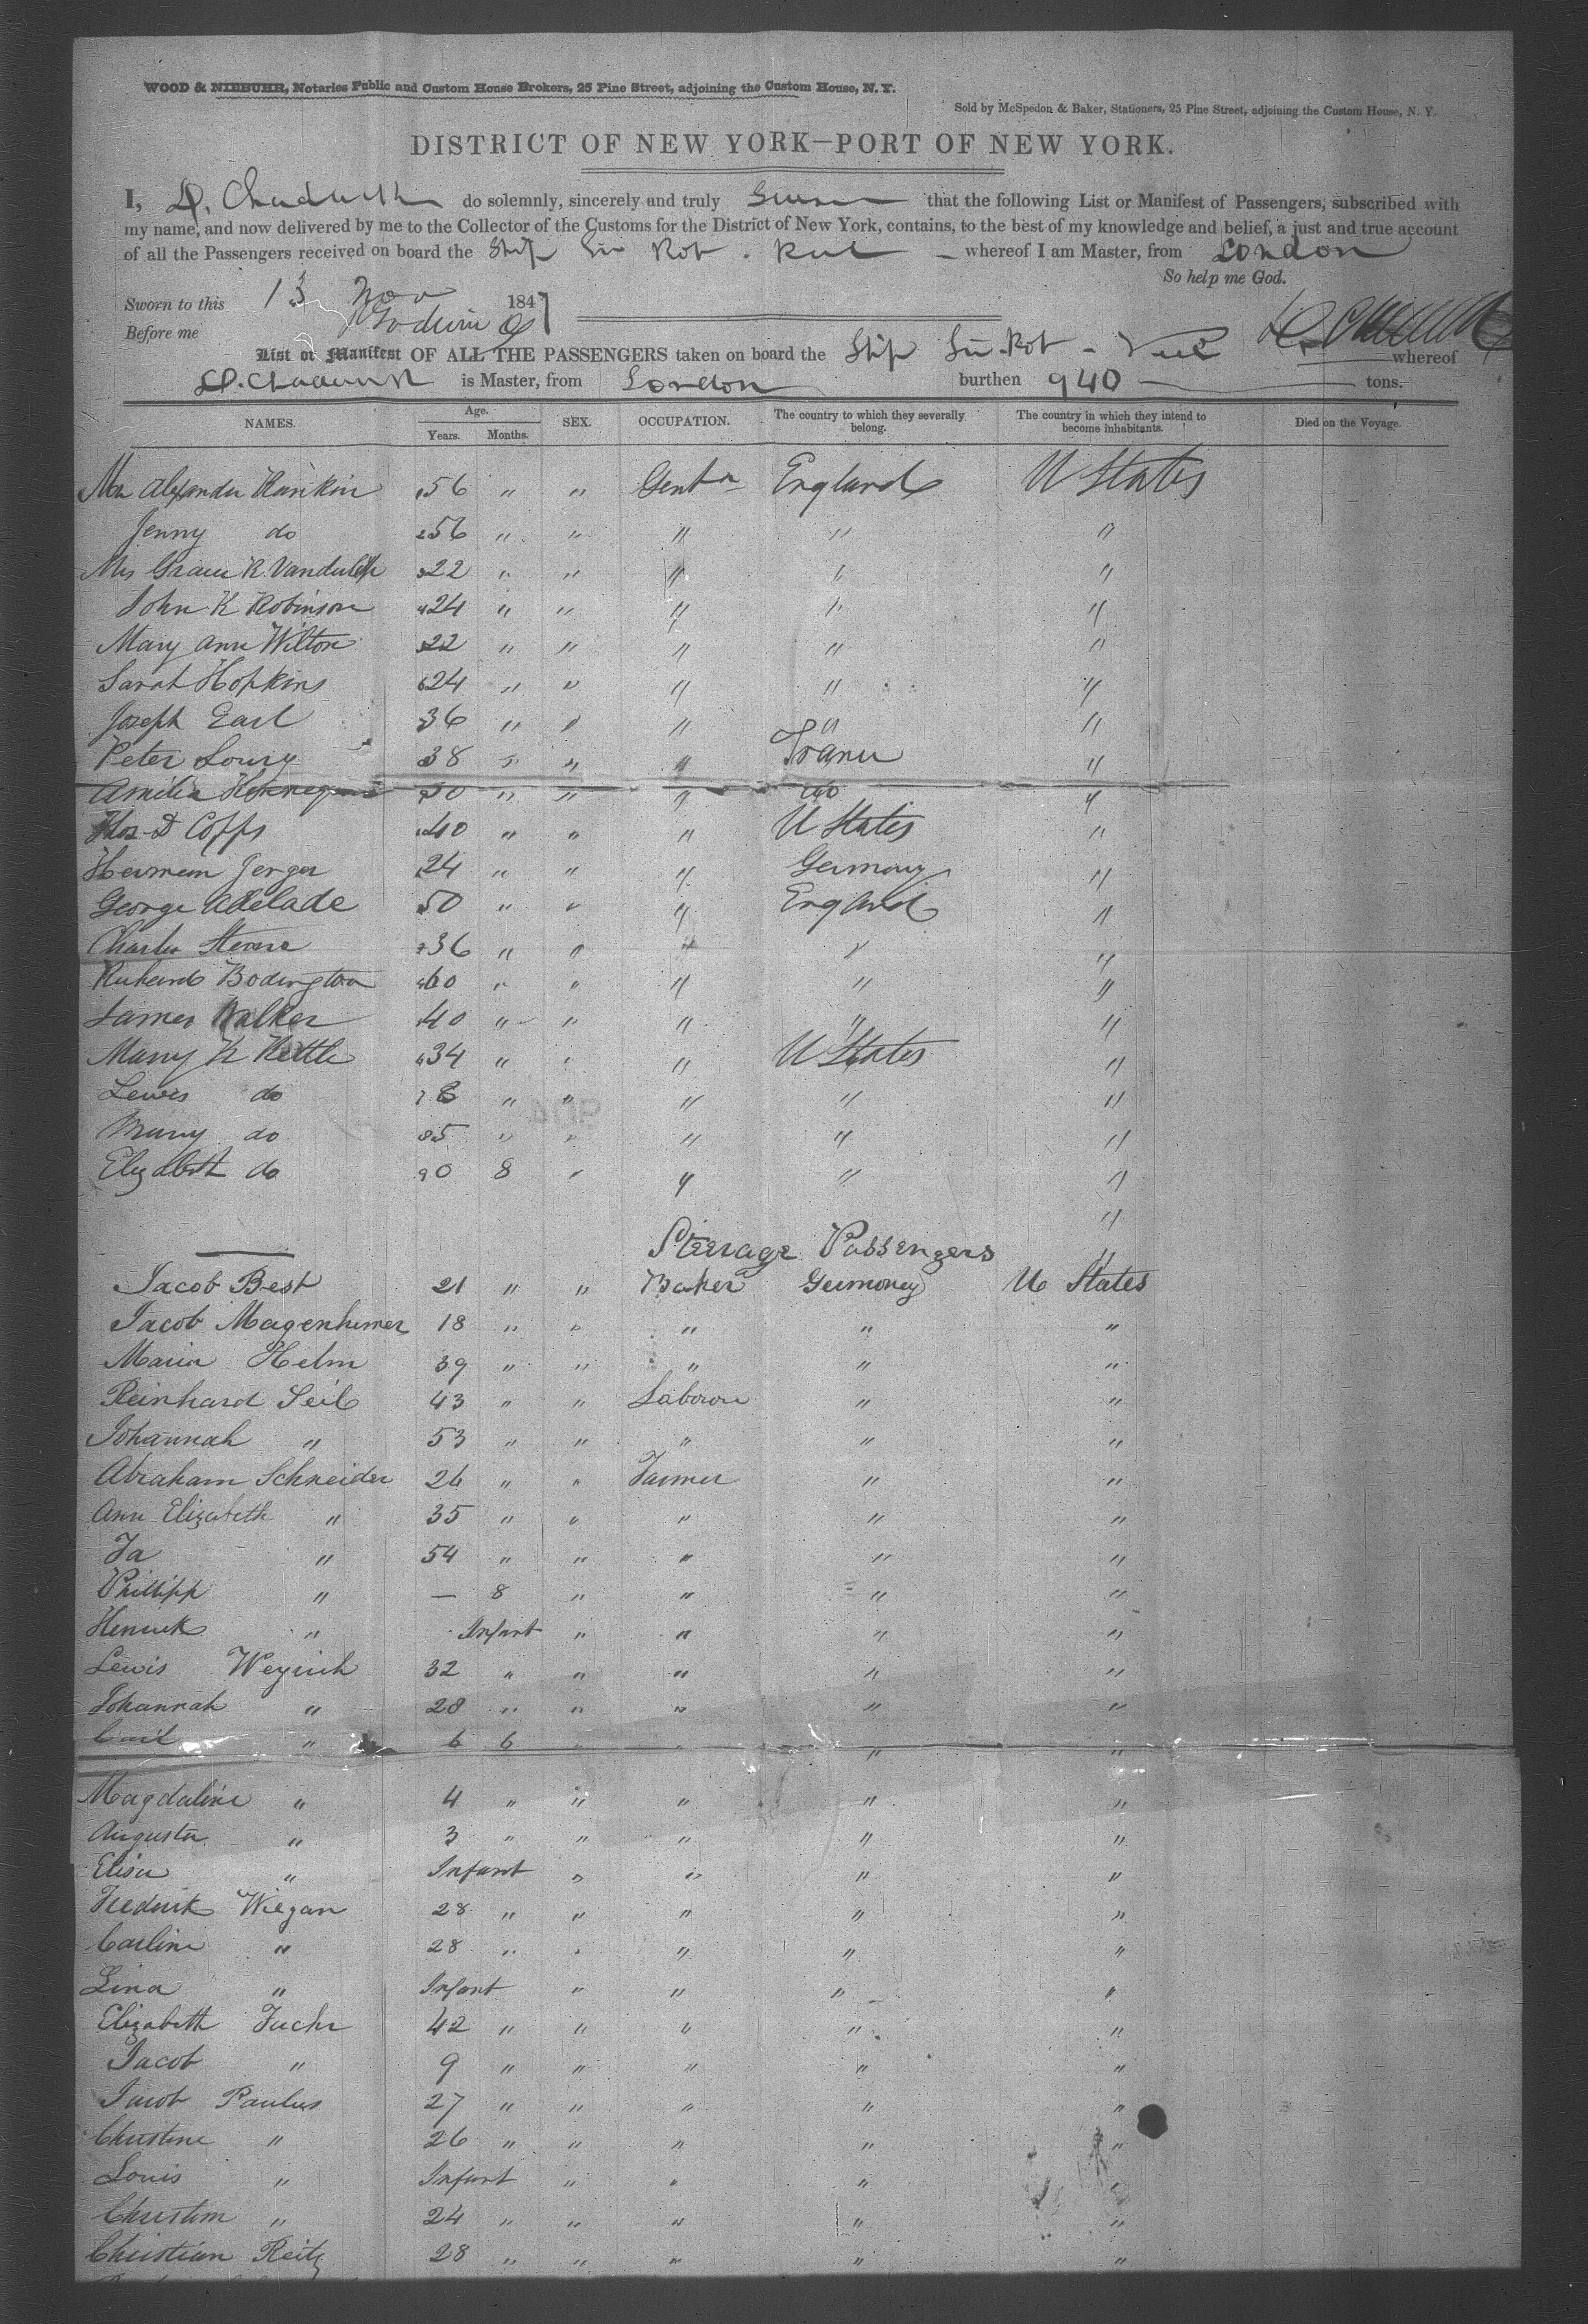 WOOD & NIEBUHR, Notaries Public and Custom House Brokers, 25 Pine Street, adjoining the Custom House, N. Y.
Sold by McSpedon & Baker, Stationers, 25 Pine Street, adjoining the Custom House, N. Y.
DISTRICT OF NEW YORK—PORT OF NEW YORK.
I, D. Chadwick do solemnly, sincerely and truly Swear that the following List or Manifest of Passengers, subscribed with
my name, and now delivered by me to the Collector of the Customs for the District of New York, contains, to the best of my knowledge and belief, a just and true account
of all the Passengers received on board the Ship Sir Rob. Peel whereof I am Master, from London
So help me God.
Sworn to this 13 Nov 1847
Before me
List or Manifest OF ALL THE PASSENGERS taken on board the Ship Sir Rob - Peel whereof
D. Chadwick is Master, from London burthen 940 tons.
NAMES. Age. Years. Months. SEX. OCCUPATION. The country to which they severally belong. The country in which they intend to become inhabitants. Died on the Voyage.
Mr Alexander Rankin 56 " " Gentn England U States
Jenny do 56 " " " " "
Mrs Grace R. 22 " " " " "
John K Robinson 24 " " " " "
Mary Ann Wilton 22 " " " " "
Sarah Hopkins 24 " " " " "
Joseph Earl 36 " " " " "
Peter Loury 38 " " " France "
Amilia 30 " " " do "
Thos D Copps 40 " " " U States "
Herman Jerger 24 " " " Germany "
George Adelade 50 " " " England "
Charles Sterne 36 " " " " "
Richard Bodington 60 " " " " "
James Walker 40 " " " " "
Marry K Kettle 34 " " " U States "
Lewis do 8 " " " " "
Marry do 5 " " " " "
Elizabeth do 0 8 " " " "
"
Steerage Passengers "
Jacob Best 21 " " Baker Germoney U States
Jacob Magenhimer 18 " " " " "
Maria Helm 39 " " " " "
Reinhard Seib 43 " " Labour " "
Johannah " 53 " " " " "
Abraham Schneider 26 " " Farmer " "
Ann Elizabeth " 35 " " " " "
Ja " 54 " " " " "
Phillipp " — 8 " " " "
Henrick " Infant " " " "
Lewis Weyrich 32 " " " " "
Johannah " 28 " " " " "
Carl " 6 6 " " " "
Magdaline " 4 " " " " "
Augusta " 3 " " " " "
Elisa " Infant " " " "
Frederick Wiegan 28 " " " " "
Carline " 28 " " " " "
Lina " Infant " " " "
Elizabeth Fuchs 42 " " " " "
Jacob " 9 " " " " "
Jacob Paulus 27 " " " " "
Christine " 26 " " " " "
Louis " Infant " " " "
Christom " 24 " " " " "
Christian Reitz 28 " " " " "